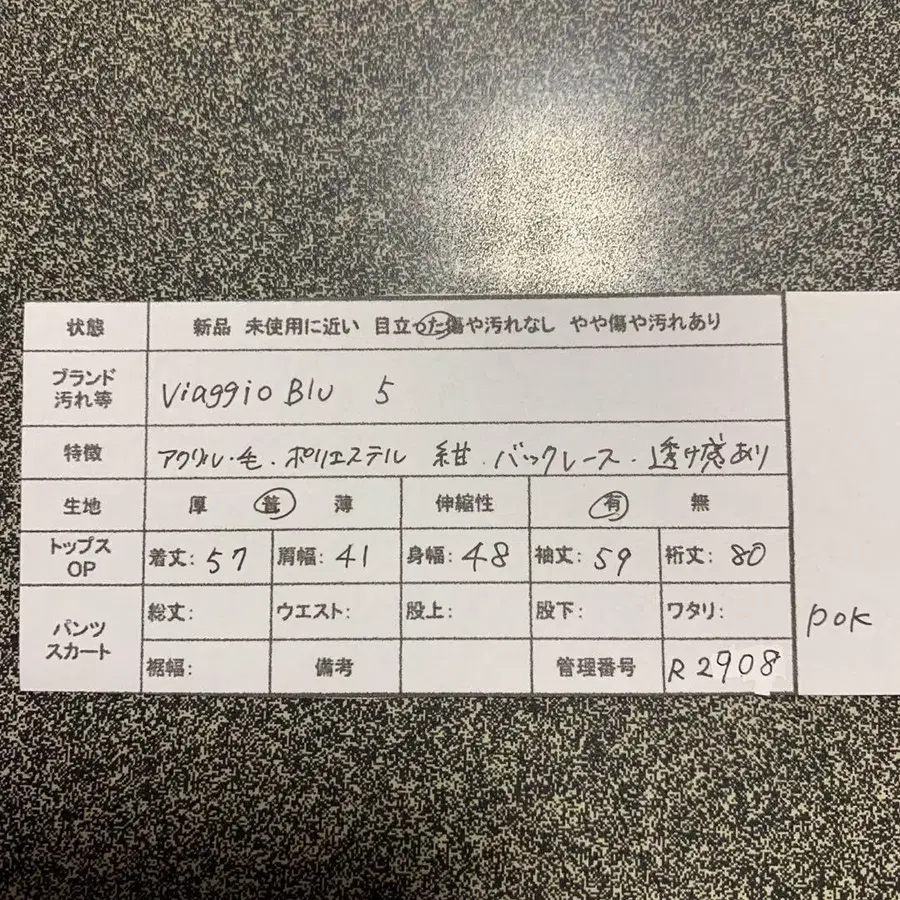 状態 新品 未使用に近い 目立った傷や汚れなし やや傷や汚れあり
ブランド
汚れ等
Viaggio Blu 5
特徴 アクリル・毛・ポリエステル 紺・バックレース・透け感あり
生地 厚 普 薄 伸縮性 有 無
トップス
OP
着丈: 57 肩幅: 41 身幅: 48 袖丈: 59 裄丈: 80
パンツ
スカート
総丈: ウエスト: 股上: 股下: ワタリ:
裾幅: 備考 管理番号 R2908
pok